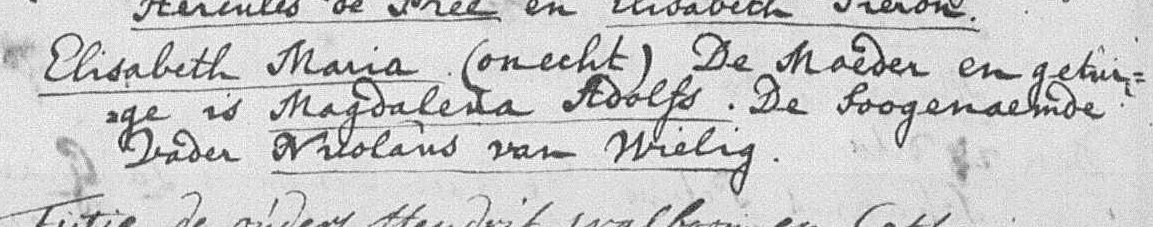 Hercules de Pree en Elisabeth Pieron.
Elisabeth Maria (onecht) De Moeder en getui=
ge is Magdalena Adolfs. De Soogenaemde
Vader Nicolaus van Wielig.
de ouders Hendrik en